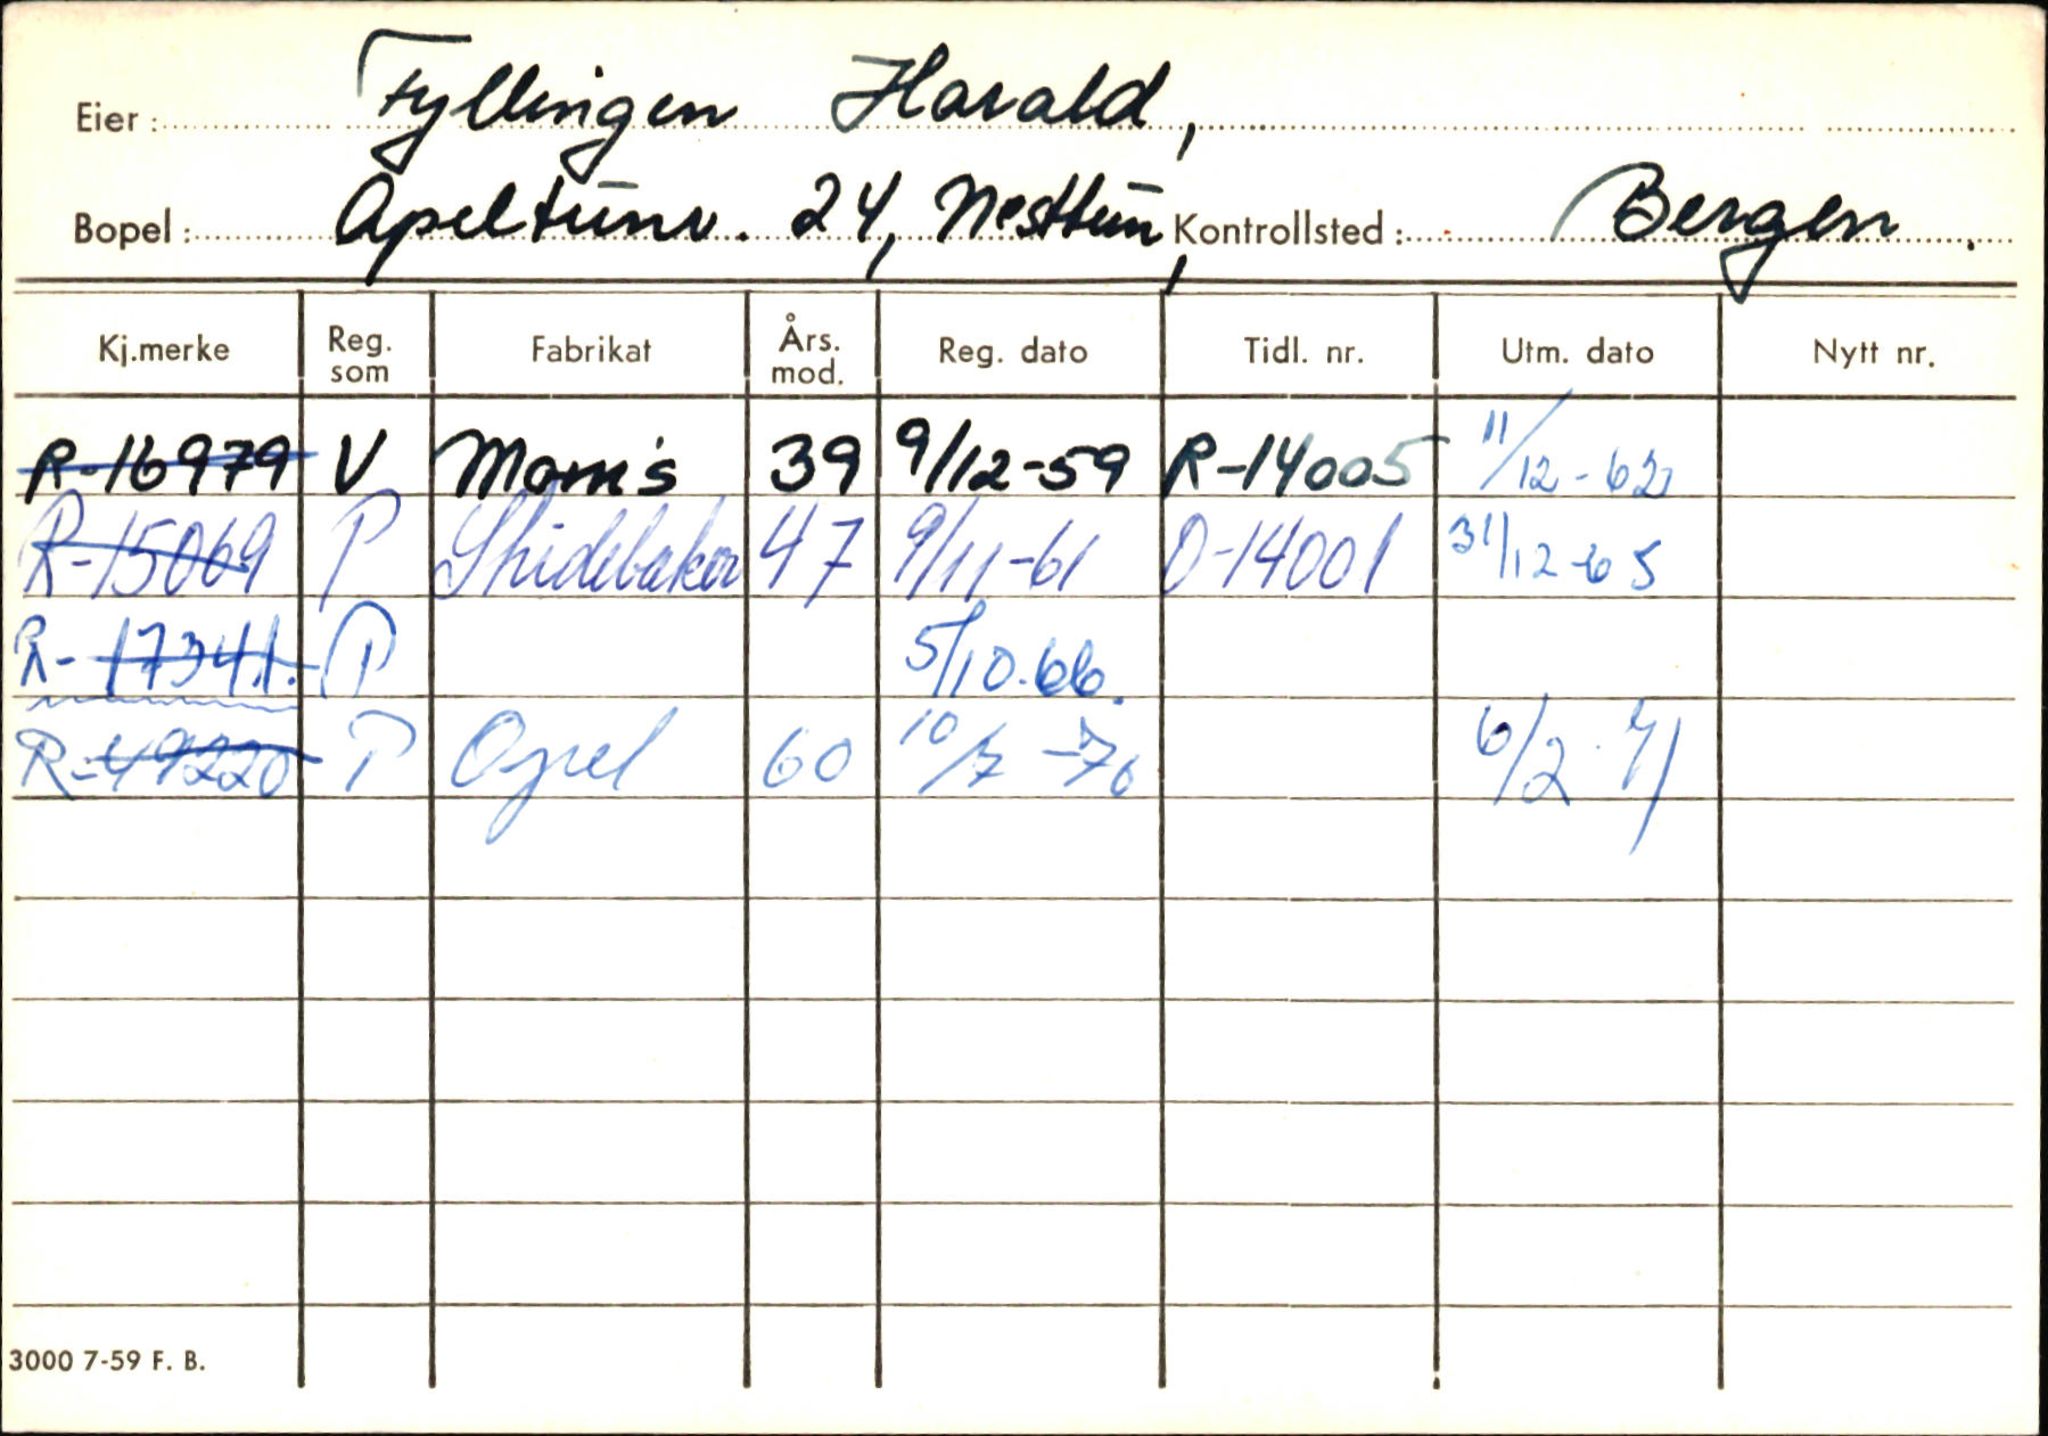 Eier: Fyllingen Harald,
Bopel: Apeltunv. 24, Nesttun, Kontrollsted: Bergen.
Kj.merke Reg. som Fabrikat Års. mod. Reg. dato Tidl. nr. Utm. dato Nytt nr.
R-16979 V Morris 39 9/12-59 R-14005 11/12-62
R-15069 P Studebaker 47 9/11-61 O-14001 31/12-65
R-17341. P 5/10.66.
R-49220 P Opel 60 10/7-70 6/2.71
3000 7-59 F. B.